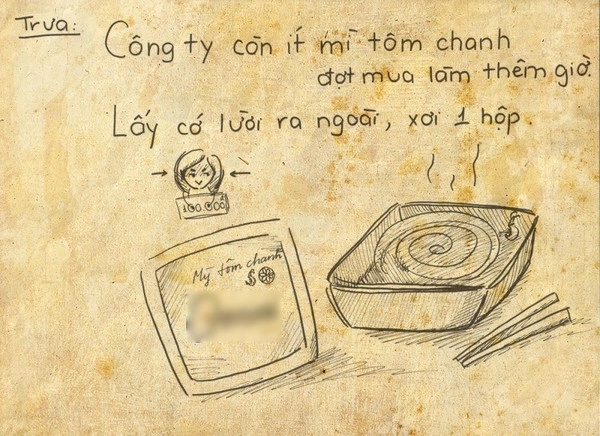 Trưa:
Công ty còn ít mì tôm chanh
đợt mua làm thêm giờ.
Lấy cớ lười ra ngoài, xơi 1 hộp.
100.000
Mỳ tôm chanh